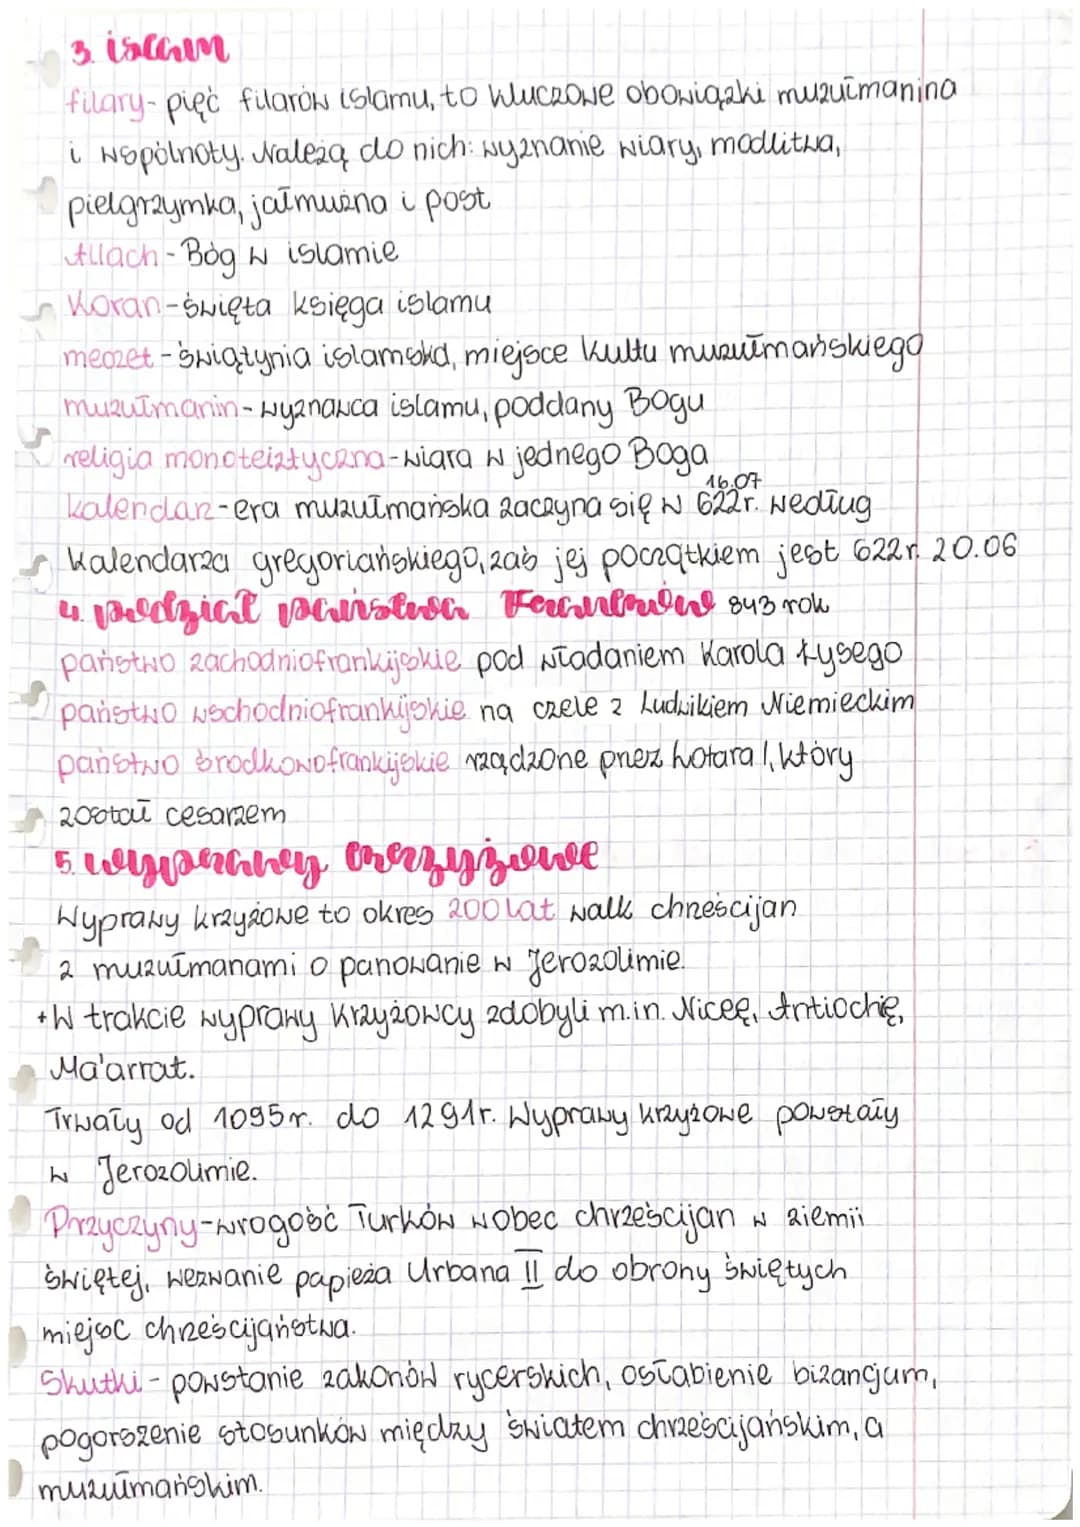 3. islam
filary - pięć filarów islamu, to kluczowe obowiązki muzułmanina
i wspólnoty. Należą do nich: wyznanie wiary, modlitwa,
pielgrzymka, jałmużna i post
Allach - Bóg w islamie
Koran - święta księga islamu
meczet - świątynia islamska, miejsce kultu muzułmańskiego
muzułmanin - wyznawca islamu, poddany Bogu
religia monoteiztyczna - wiara w jednego Boga
16.07
kalendarz - era muzułmańska zaczyna się w 622r. według
kalendarza gregoriańskiego, zaś jej początkiem jest 622r. 20.06
4. podział państwa Franków 843 rok
państwo zachodniofrankijskie pod władaniem Karola Łysego
państwo wschodniofrankijskie na czele z Ludwikiem Niemieckim
państwo środkowofrankijskie rządzone przez Lotara I, który
został cesarzem
5. wyprawy krzyżowe
Wyprawy krzyżowe to okres 200 lat walk chrześcijan
z muzułmanami o panowanie w Jerozolimie.
+ W trakcie wyprawy Krzyżowcy zdobyli m.in. Niceę, Antiochię,
Ma'arrat.
Trwały od 1095r. do 1291r. Wyprawy krzyżowe powstały
w Jerozolimie.
Przyczyny - wrogość Turków wobec chrześcijan w ziemii
świętej, wezwanie papieża Urbana II do obrony świętych
miejsc chrześcijaństwa.
Skutki - powstanie zakonów rycerskich, osłabienie bizancjum,
pogorszenie stosunków między światem chrześcijańskim, a
muzułmańskim.